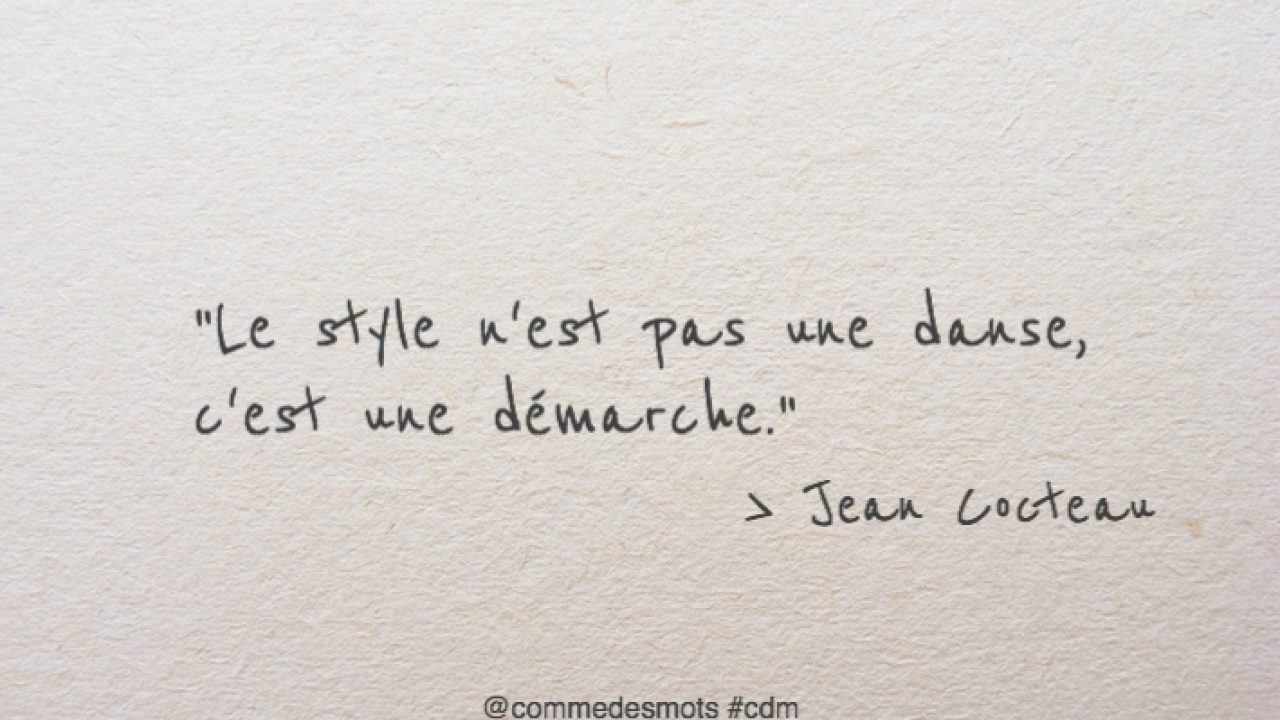 "Le style n'est pas une danse,
c'est une démarche."
> Jean Cocteau
@commedesmots #cdm